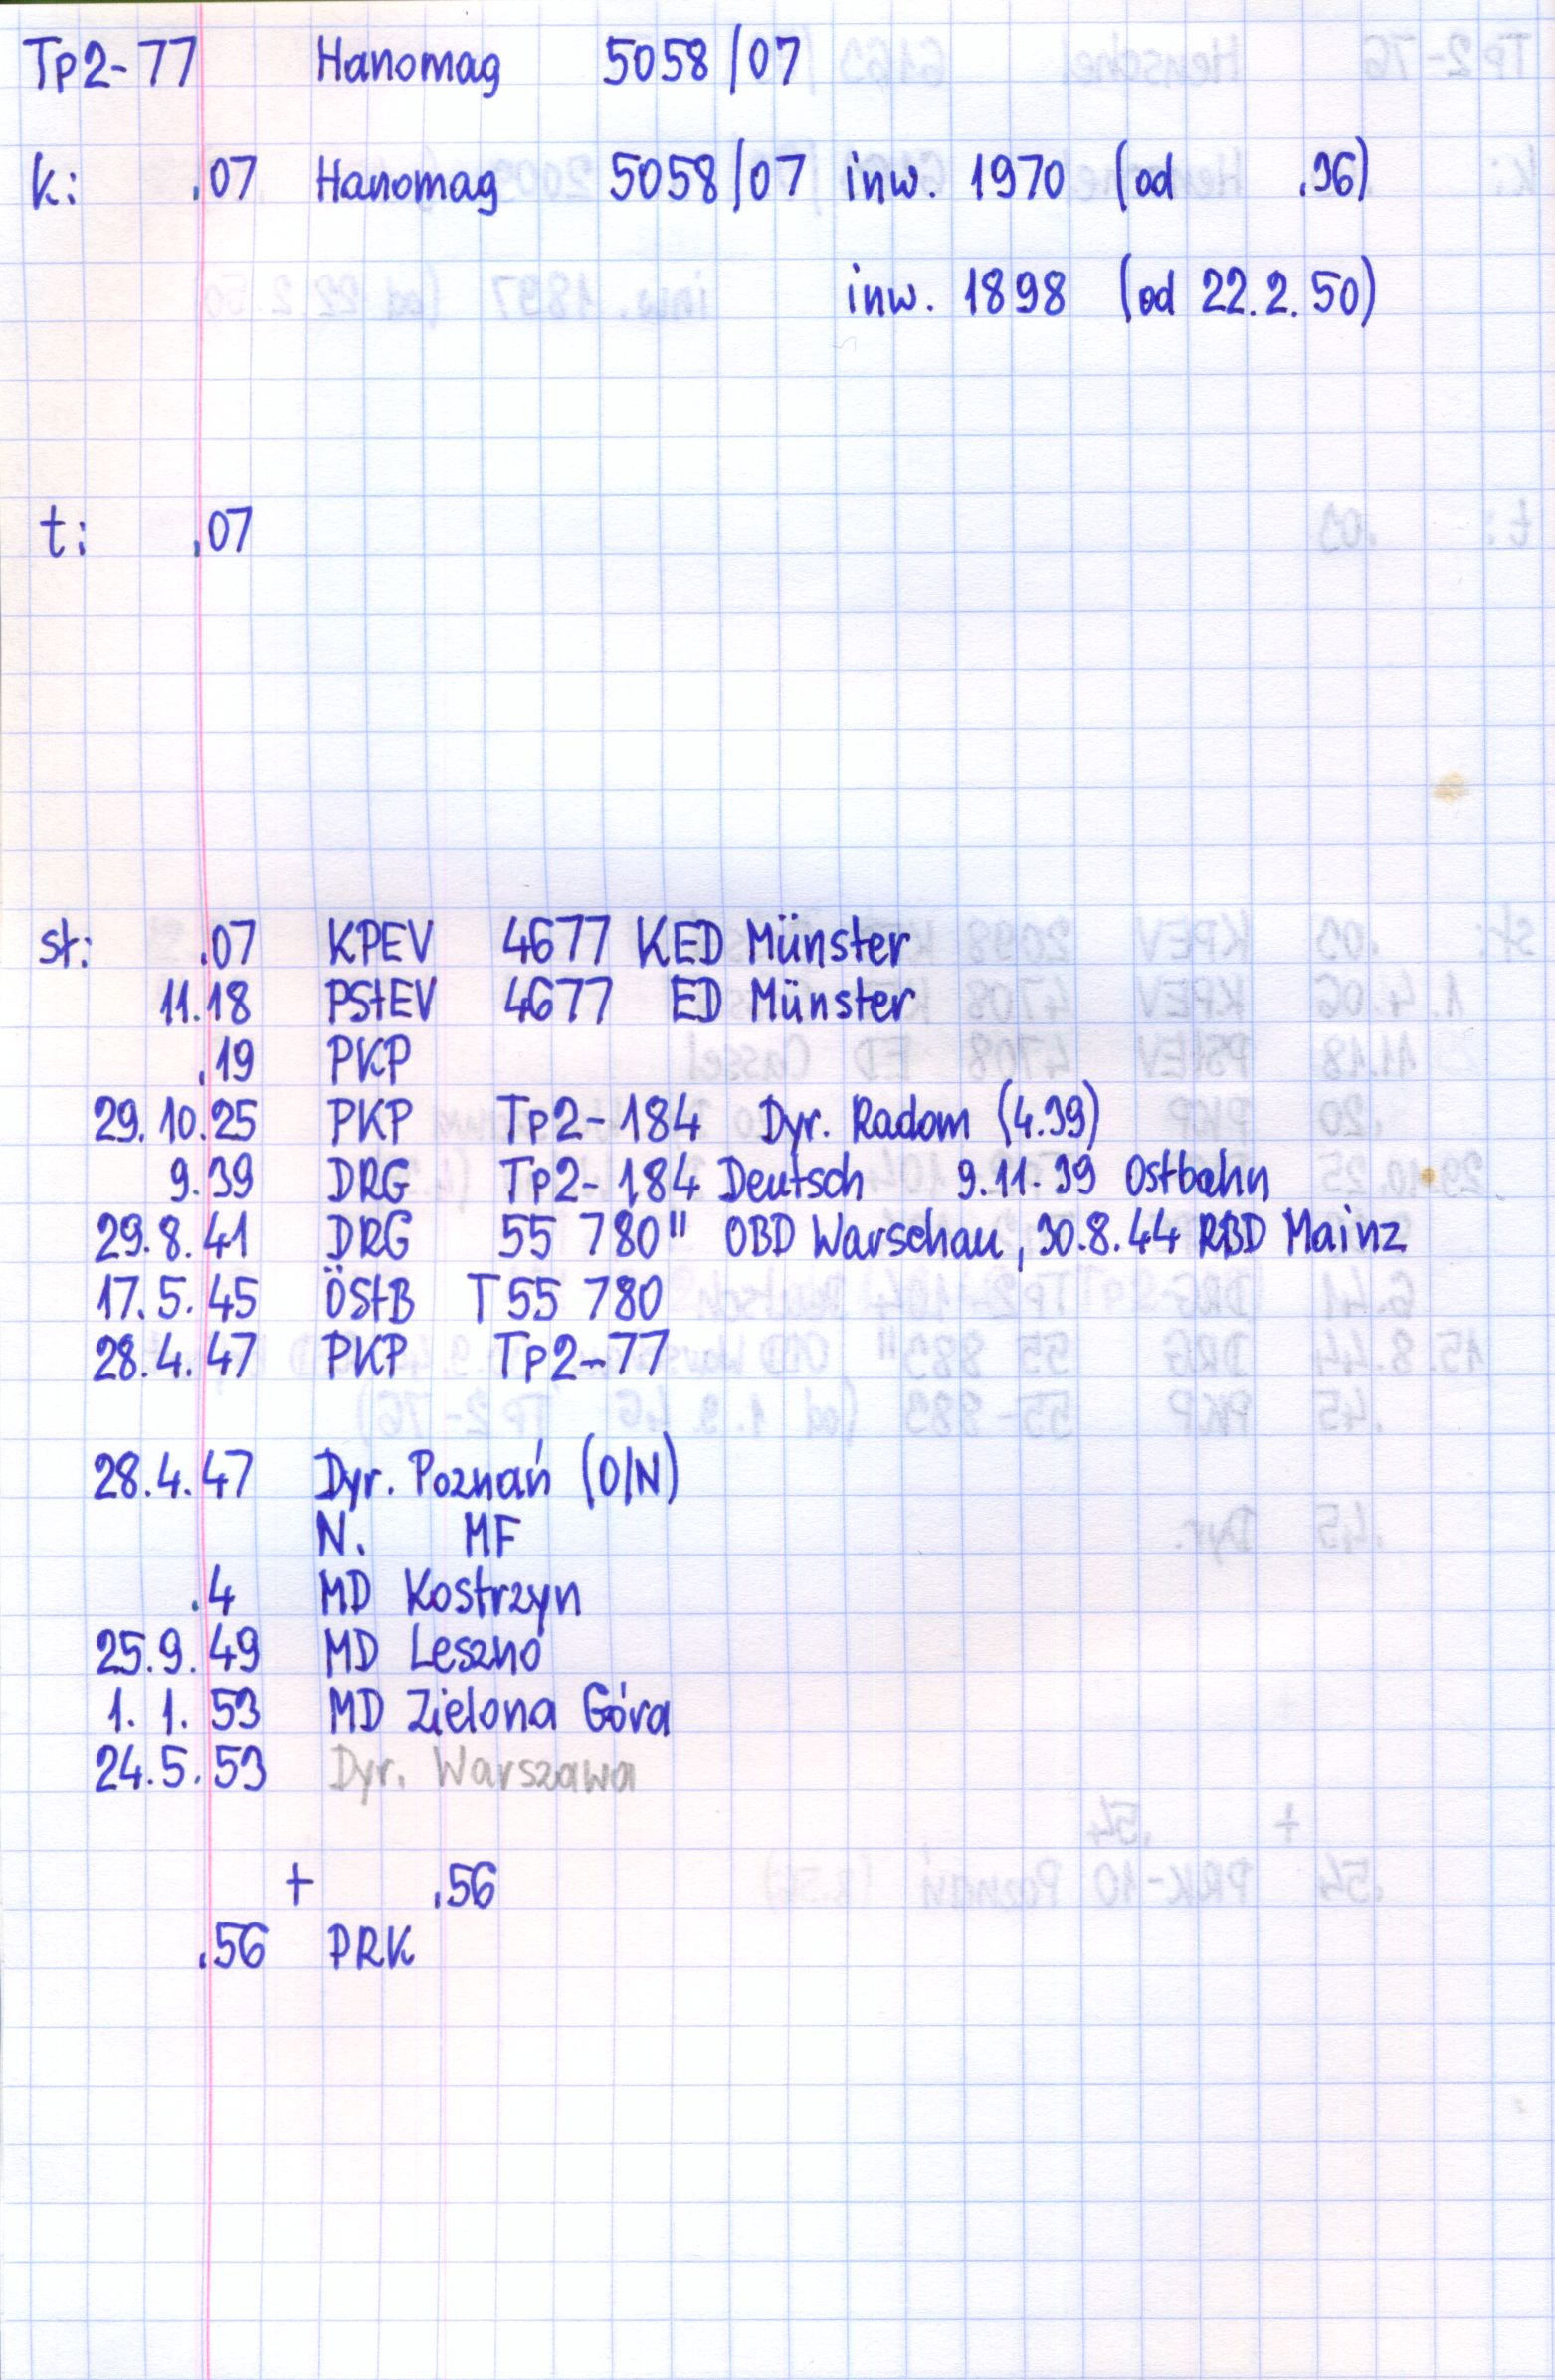 Tp2-77 Hanomag 5058/07
k: .07 Hanomag 5058/07 inw. 1970 (od .36)
inw. 1898 (od 22.2.50)
t: .07
st: .07 KPEV 4677 KED Münster
11.18 PStEV 4677 ED Münster
.19 PKP
29.10.25 PKP Tp2-184 Dyr. Radom (4.39)
9.39 DRG Tp2-184 Deutsch 9.11.39 Ostbahn
29.8.41 DRG 55 780" OBD Warschau, 30.8.44 RBD Mainz
17.5.45 ÖStB T 55 780
28.4.47 PKP Tp2-77
28.4.47 Dyr. Poznań (O/N)
N. MF
.4 MD Kostrzyn
25.9.49 MD Leszno
1.1.53 MD Zielona Góra
24.5.53 Dyr. Warszawa
+ .56
.56 PRK